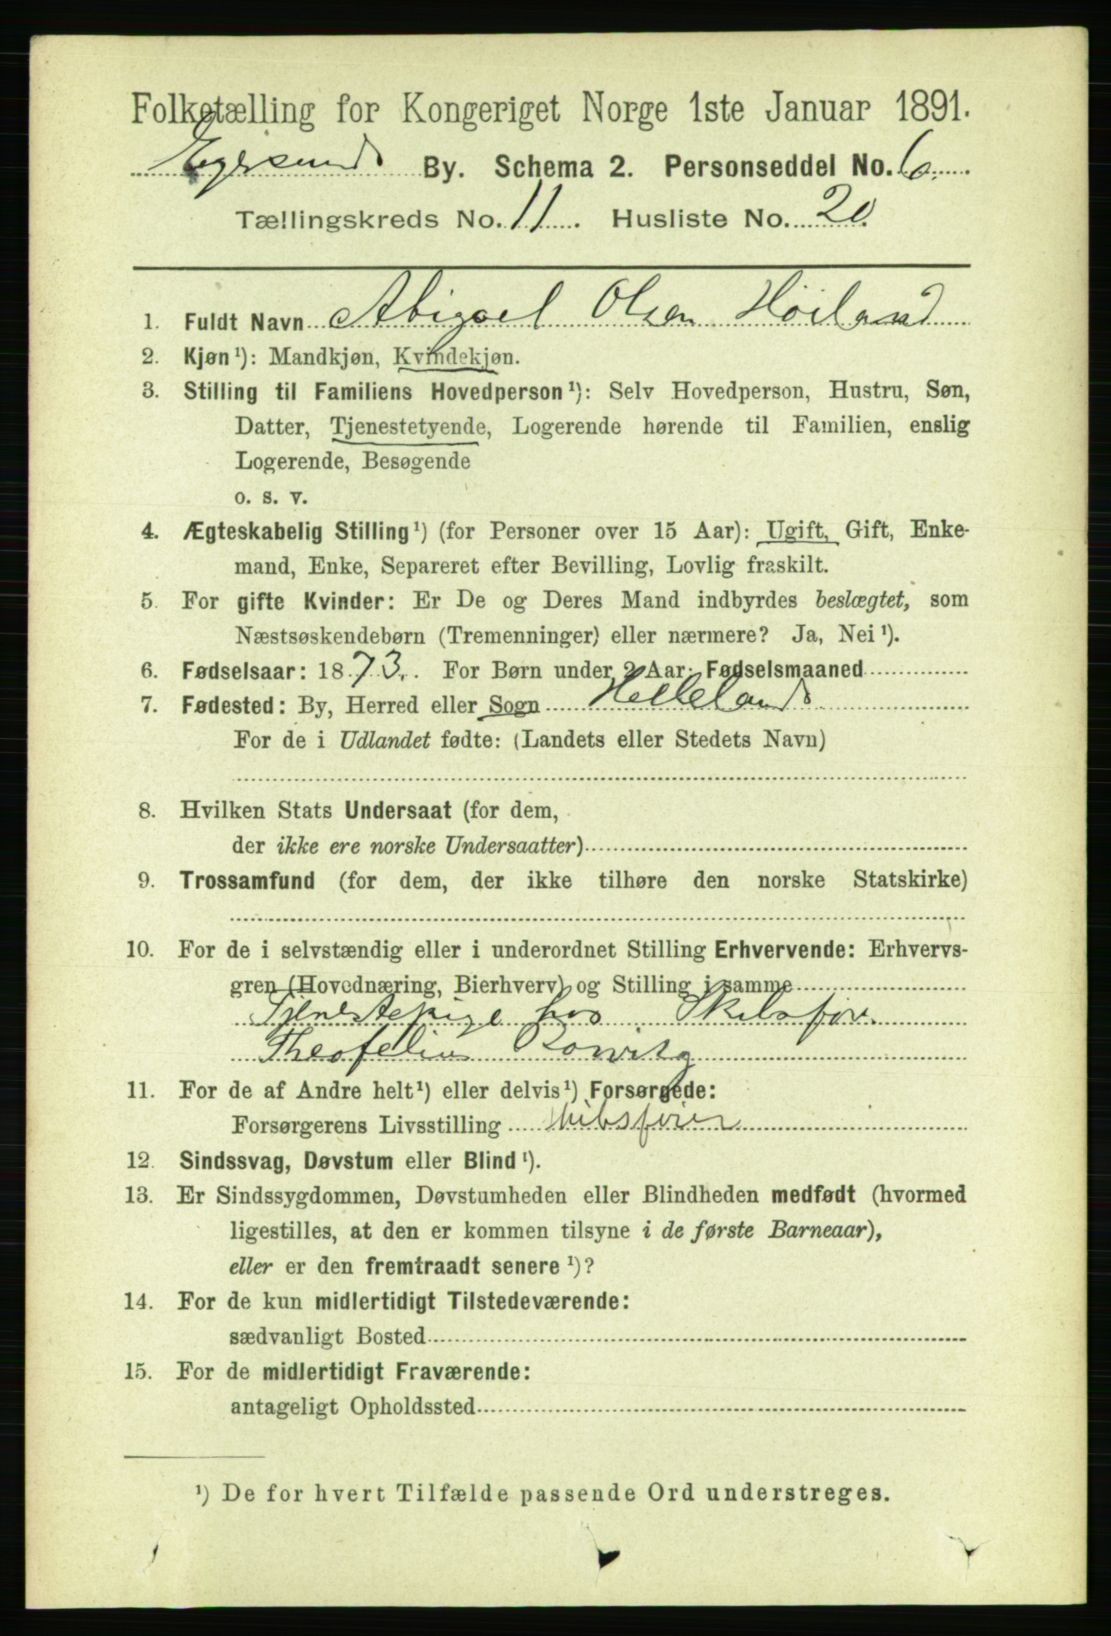 Folketælling for Kongeriget Norge 1ste Januar 1891.
Egersund By. Schema 2. Personseddel No. 6.
Tællingskreds No. 11. Husliste No. 20.
1. Fuldt Navn Abigael Olsen Høiland
2. Kjøn¹): Mandkjøn, Kvindekjøn.
3. Stilling til Familiens Hovedperson¹): Selv Hovedperson, Hustru, Søn,
Datter, Tjenestetyende, Logerende hørende til Familien, enslig
Logerende, Besøgende
o. s. v.
4. Ægteskabelig Stilling¹) (for Personer over 15 Aar): Ugift, Gift, Enke-
mand, Enke, Separeret efter Bevilling, Lovlig fraskilt.
5. For gifte Kvinder: Er De og Deres Mand indbyrdes beslægtet, som
Næstsøskendebørn (Tremenninger) eller nærmere? Ja, Nei¹).
6. Fødselsaar: 1873. For Børn under 2 Aar: Fødselsmaaned
7. Fødested: By, Herred eller Sogn Helleland
For de i Udlandet fødte: (Landets eller Stedets Navn)
8. Hvilken Stats Undersaat (for dem,
der ikke ere norske Undersaatter)
9. Trossamfund (for dem, der ikke tilhøre den norske Statskirke)
10. For de i selvstændig eller i underordnet Stilling Erhvervende: Erhvervs-
gren (Hovednæring, Bierhverv) og Stilling i samme
Tjenestepige hos
Theofelius
11. For de af Andre helt¹) eller delvis¹) Forsørgede:
Forsørgerens Livsstilling
12. Sindssvag, Døvstum eller Blind¹).
13. Er Sindssygdommen, Døvstumheden eller Blindheden medfødt (hvormed
ligestilles, at den er kommen tilsyne i de første Barneaar),
eller er den fremtraadt senere¹)?
14. For de kun midlertidigt Tilstedeværende:
sædvanligt Bosted
15. For de midlertidigt Fraværende:
antageligt Opholdssted
¹) De for hvert Tilfælde passende Ord understreges.